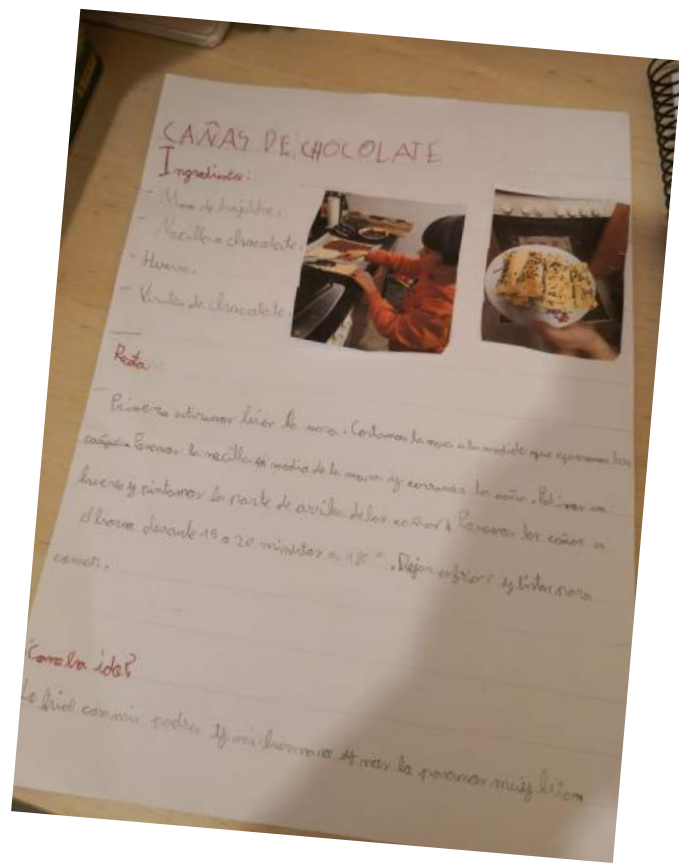 CAÑAS DE CHOCOLATE
Ingredientes:
- Masa de hojaldre.
- Nocilla o chocolate.
- Huevo.
- Virutas de chocolate.
Receta
- Primero estiramos bien la masa. Cortamos la masa a la medida que queramos las
cañas. Ponemos la nocilla en medio de la masa y cerramos la caña. Batimos un
huevo y pintamos la parte de arriba de las cañas. Ponemos las cañas a
al horno durante 15 a 20 minutos a 18 . Dejar enfriar y listas para
comer.
¿Como ha ido?
Lo hice con mis padres y mi hermano y nos lo pasamos muy bien